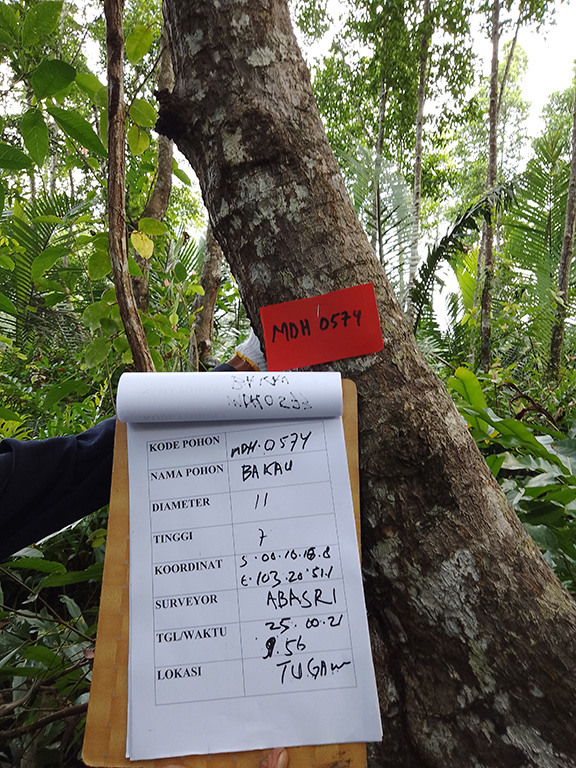 MDH 0574
KODE POHON MDH.0574
NAMA POHON BAKAU
DIAMETER 11
TINGGI 7
KOORDINAT S.00.10.18.8
E.103.20.51.1
SURVEYOR ABASRI
TGL/WAKTU 25.00.21
9.56
LOKASI